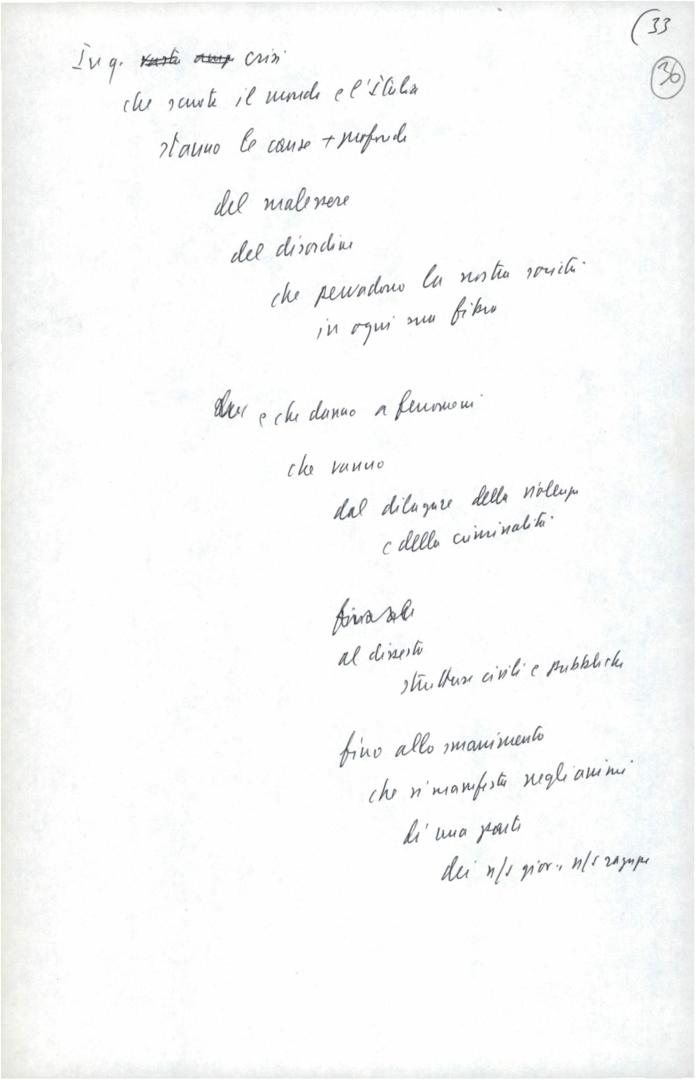 (33
36
In q. crisi
che scuote il mondo e l'Italia
stanno le cause + profonde
del malessere
del disordine
che pervadono la nostra società
in ogni sua fibra
e che danno a fenomeni
che vanno
dal dilagare della violenza
e della criminalità
fino al
al dissesto
strutture civili e pubbliche
fino allo smarrimento
che si manifesta negli animi
di una parte
dei n/s giov., n/s ragazze